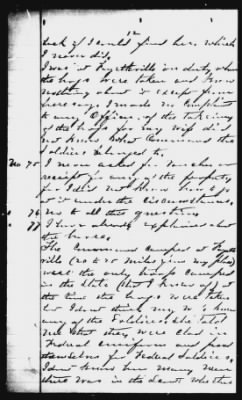 12
back if I could find her. Which
I never did.
I was at Fayetteville on duty when
the hogs were taken and know
nothing about it except from
hearsay. I made no complaint
to any Officer, of the taking
of the hogs for my wife did
not know what Command the
Soldiers belonged to.
No. 75 I never asked for voucher or
receipt for any of the property
for I did not know how to go
at it under the circumstances.
76 No to all the questions
77 I have already explained about
the horses.
The Command camped at Fayette-
ville (20 to 25 miles from my place)
were the only troops camped
in the State (that I know of) at
the time the hogs were taken
but I dont think my w. knew
any of the Soldiers. She told
me that they were clad in
Federal uniforms and passed
themselves for Federal Soldiers.
I dont know how many men
there was in the command whether